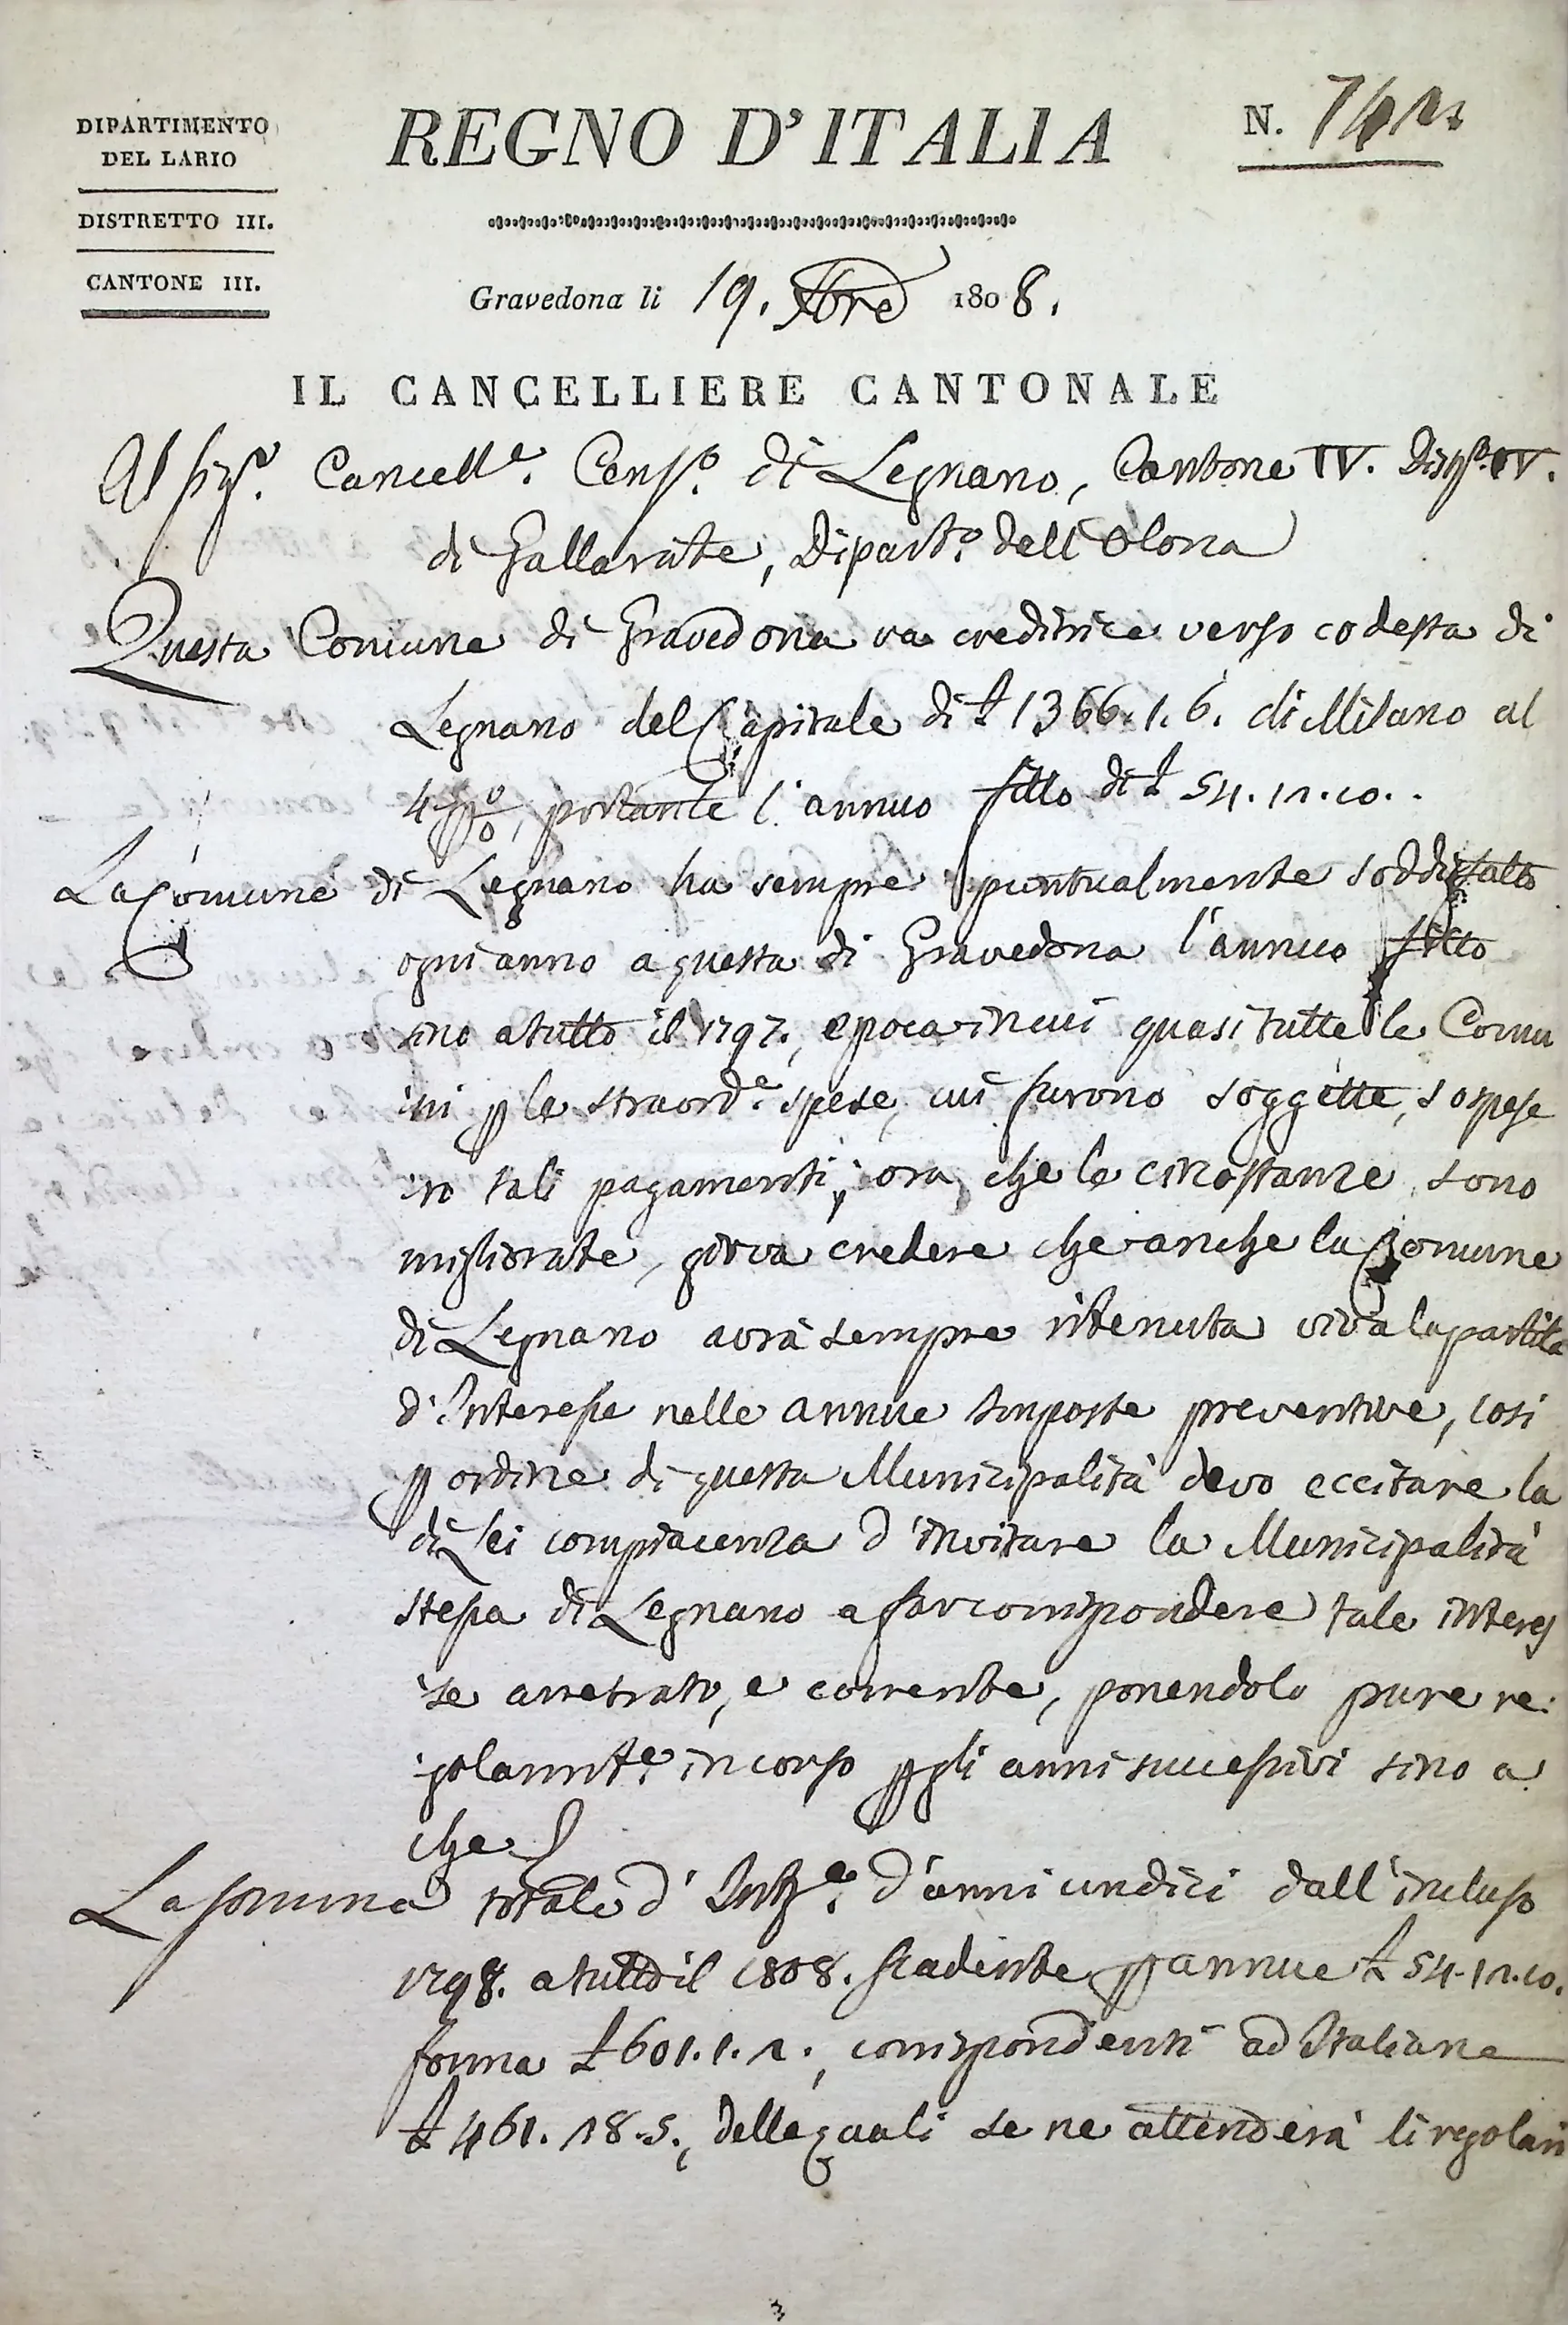 DIPARTIMENTO
DEL LARIO
DISTRETTO III.
CANTONE III.
REGNO D'ITALIA
N.
Gravedona li 19. 1808.
IL CANCELLIERE CANTONALE
Al Sigr. Cancelle. Censo. di Legnano, Cantone IV. Distro. IV.
di Gallarate, Diparto. dell'Olona
Questa Comune di Gravedona va creditrice verso codesta di
Legnano del Capitale di £ 1366.1.6. di Milano al
4 p%, portante l'annuo fitto di £ 54.12.10..
La Comune di Legnano ha sempre puntualmente soddisfatto
ogni anno a questa di Gravedona l'annuo fitto
sino a tutto il 1797., epoca in cui quasi tutte le Comu
ni p le straorde. spese, cui furono soggette, sospese
ro tali pagamenti; ora, che le circostanze sono
migliorate, giova credere che anche la Comune
di Legnano avrà sempre ritenuta viva la partita
d'Interesse nelle annue Imposte preventive, così
p ordine di questa Municipalità devo eccitare la
di Lei compiacenza d'invitare la Municipalità
stessa di Legnano a far corrispondere tale interes
se arretrato, e corrente, ponendolo pure re:
golarmte. in corso p gli anni successivi sino a
che
La somma totale d' Inte. d'anni undici dall'incluso
1798. a tutto il 1808. scadente p annue £ 54.12.10.
forma £ 601.1.2., corrispondenti ad Italiane
£ 461.18.5., delle quali se ne attenderà li regolari
3